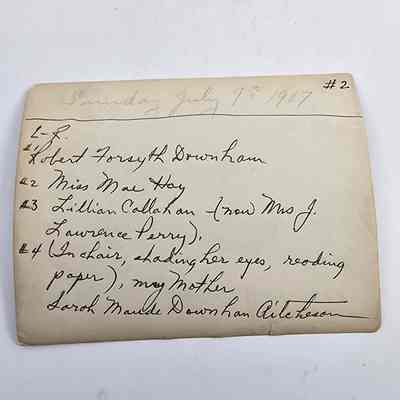 #2
Sunday July 7th 1907
L-R.
#1
Robert Forsyth Downham
#2 Miss Mae Hoy
#3 Lillian Callahan - (now Mrs J.
Lawrence Perry),
#4 (In chair, shading her eyes, reading
paper), my Mother
Sarah Maude Downham Aitcheson